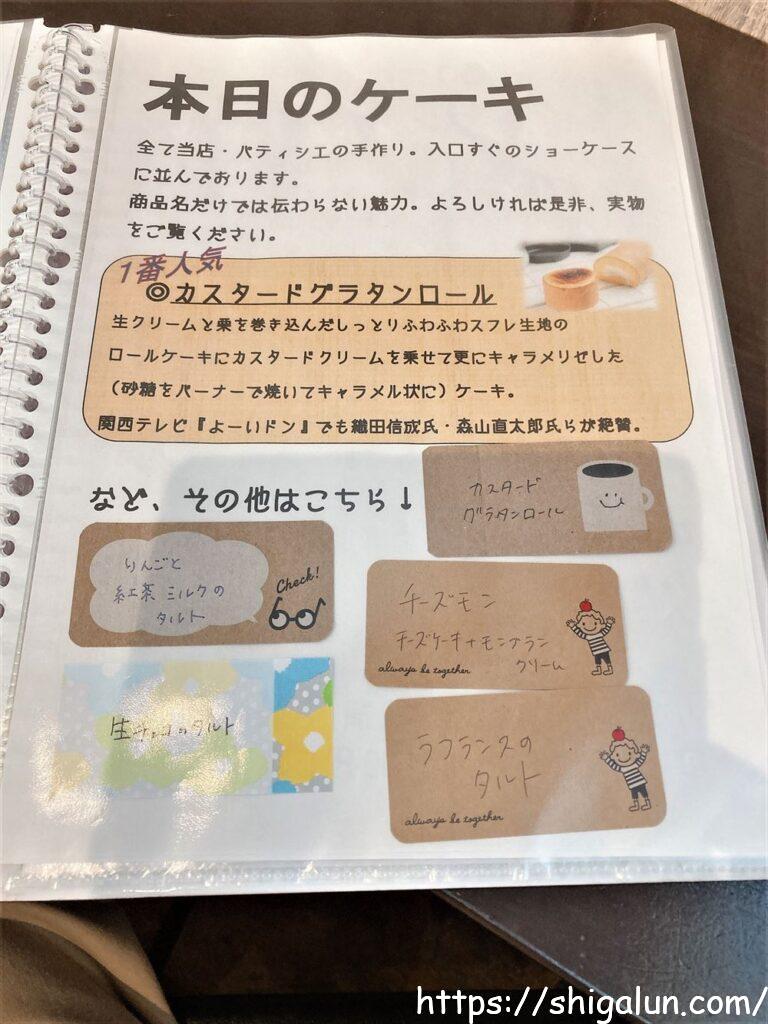 本日のケーキ
全て当店・パティシエの手作り。入口すぐのショーケース
に並んでおります。
商品名だけでは伝わらない魅力。よろしければ是非、実物
をご覧ください。
1番人気
◎カスタードグラタンロール
生クリームと栗を巻き込んだしっとりふわふわスフレ生地の
ロールケーキにカスタードクリームを乗せて更にキャラメリゼした
(砂糖をバーナーで焼いてキャラメル状に)ケーキ。
関西テレビ『よーいドン』でも織田信成氏・森山直太郎氏らが絶賛。
など、その他はこちら↓
カスタード
グラタンロール
りんごと
紅茶ミルクの
タルト
Check!
チーズモン
チーズケーキ+モンブラン
クリーム
always be together
生チョコのタルト
ラフランスの
タルト
always be together
https://shigalun.com/